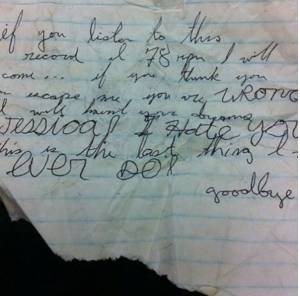 if you listen to this
record at 78 rpm I will
come... if you think you
can escape me you are WRONG
I will haunt your
Jessica I Hate YOU
this is the last thing I
EVER DO!
goodbye